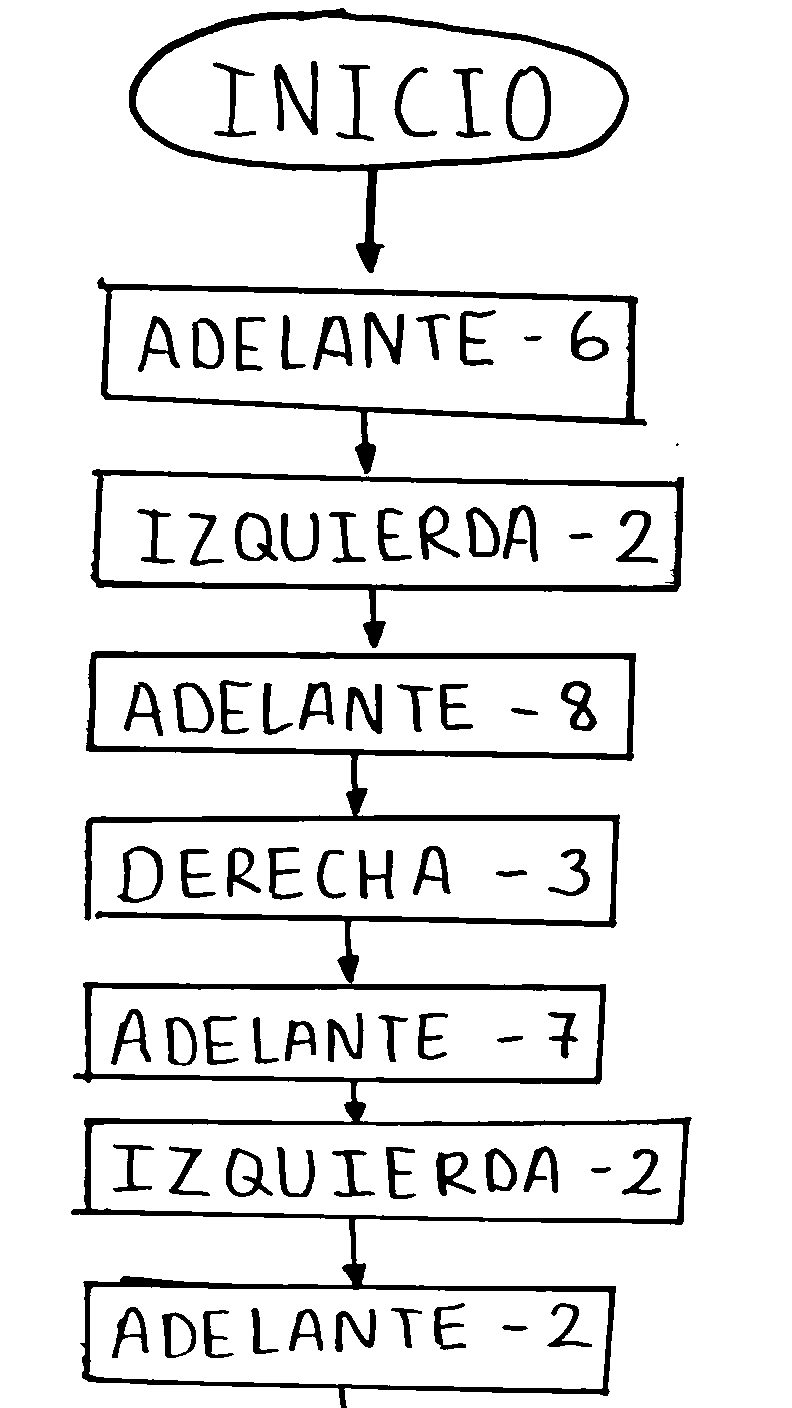 INICIO
ADELANTE - 6
IZQUIERDA - 2
ADELANTE - 8
DERECHA - 3
ADELANTE - 7
IZQUIERDA - 2
ADELANTE - 2